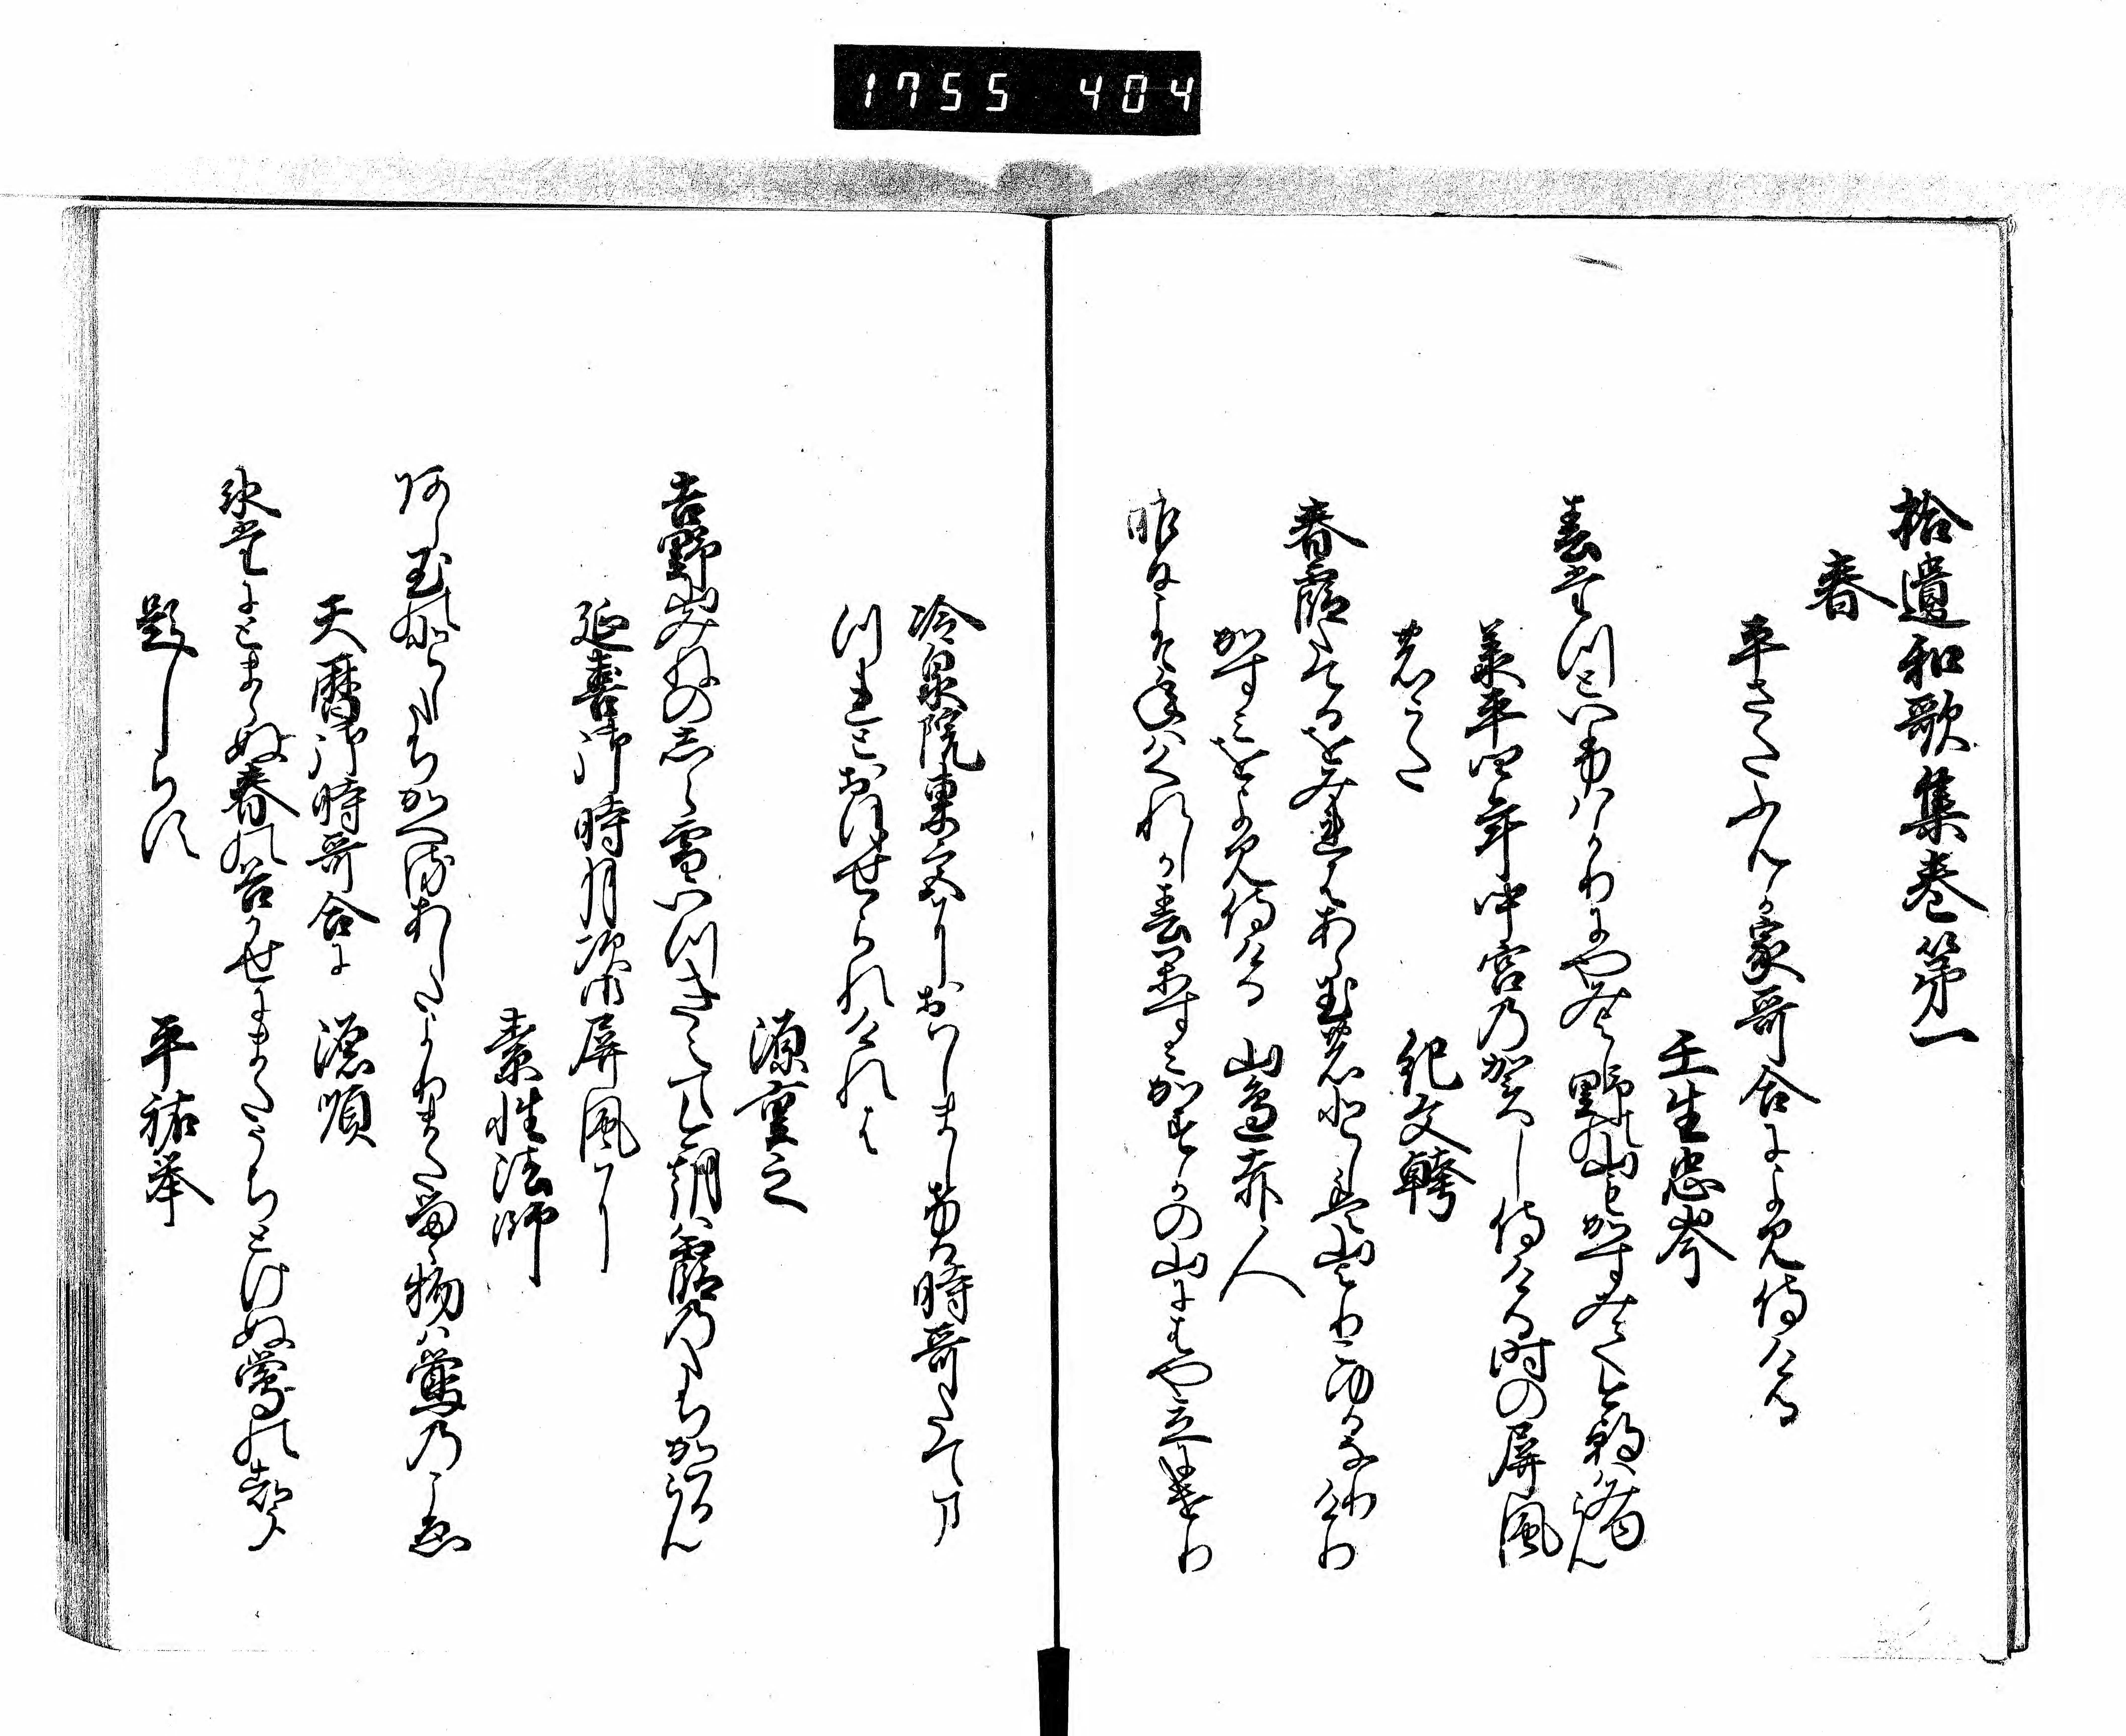 1755 404
拾遺和歌集巻第一
春
平さたふんか家哥合によみ侍ける
壬生忠岑
春たつといふはかりにやみよし野の山もかすみてけさは見ゆらん
承平四年中宮の賀し侍ける時の屏風
のうた
紀文幹
春霞たてるをみれはあら玉の年は山よりこゆるなりけり
かすみをよみ侍ける　山邊赤人
昨日こそ年はくれしか春霞かすかの山にはや立にけり
冷泉院東宮におはしましける時哥たてまつ
れとおほせられけれは
源重之
吉野山みねのしら雪いつきえてけさは霞の立かはるらん
延喜御時月次御屏風に
素性法師
あら玉の年たちかへるあしたよりまたるゝ物は鶯のこゑ
天暦御時哥合に　源順
氷たにとまらぬ春の谷かせにまたうちとけぬ鶯の声
題しらす　平祐挙